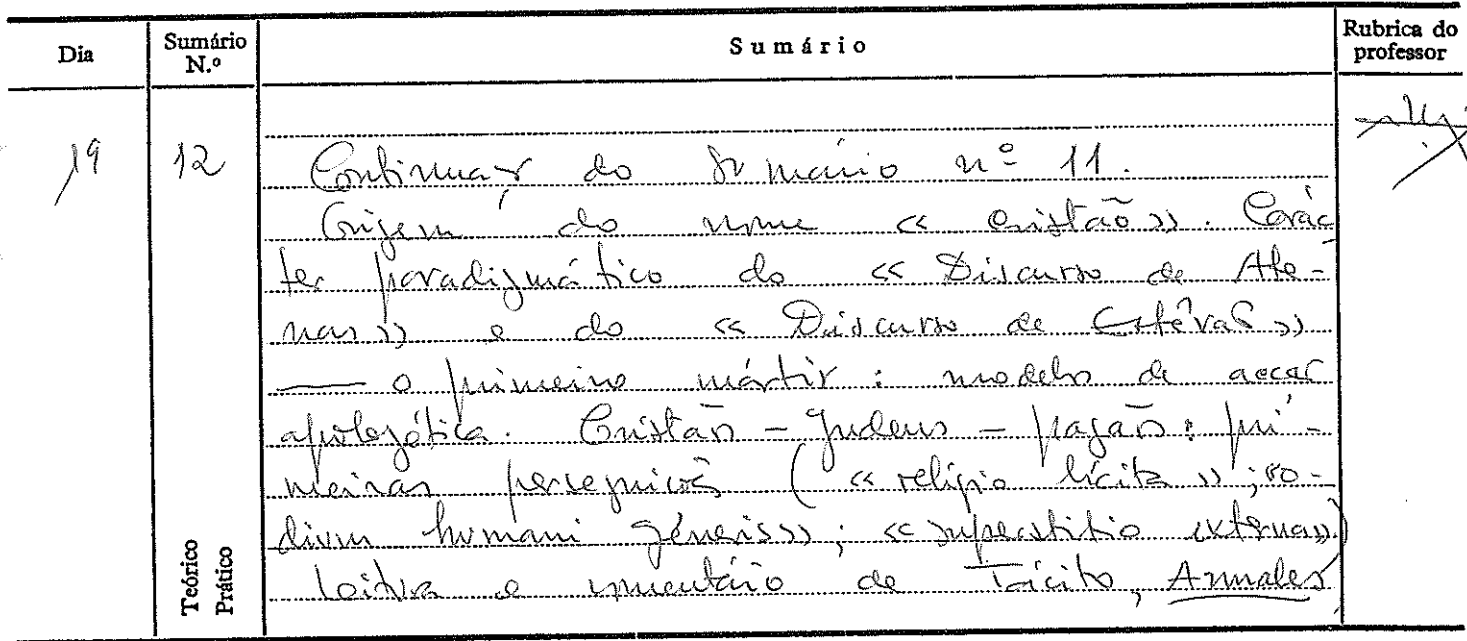 Dia Sumário N.º Sumário Rubrica do professor
19 12 Continuação do Sumário nº 11.
Origem do nome « cristão ». Carác
ter paradigmático do « Discurso de Ate-
nas » e do « Discurso de Estêvão »
— o primeiro mártir : modelos de acção
apologética. Cristãos - Judeus - pagãos : pri-
meiras perseguições ( « religio lícita » ; « o-
dium humani géneris » ; « superstitio externa »)
Leitura e comentário de Tácito, Annales
Teórico
Prático